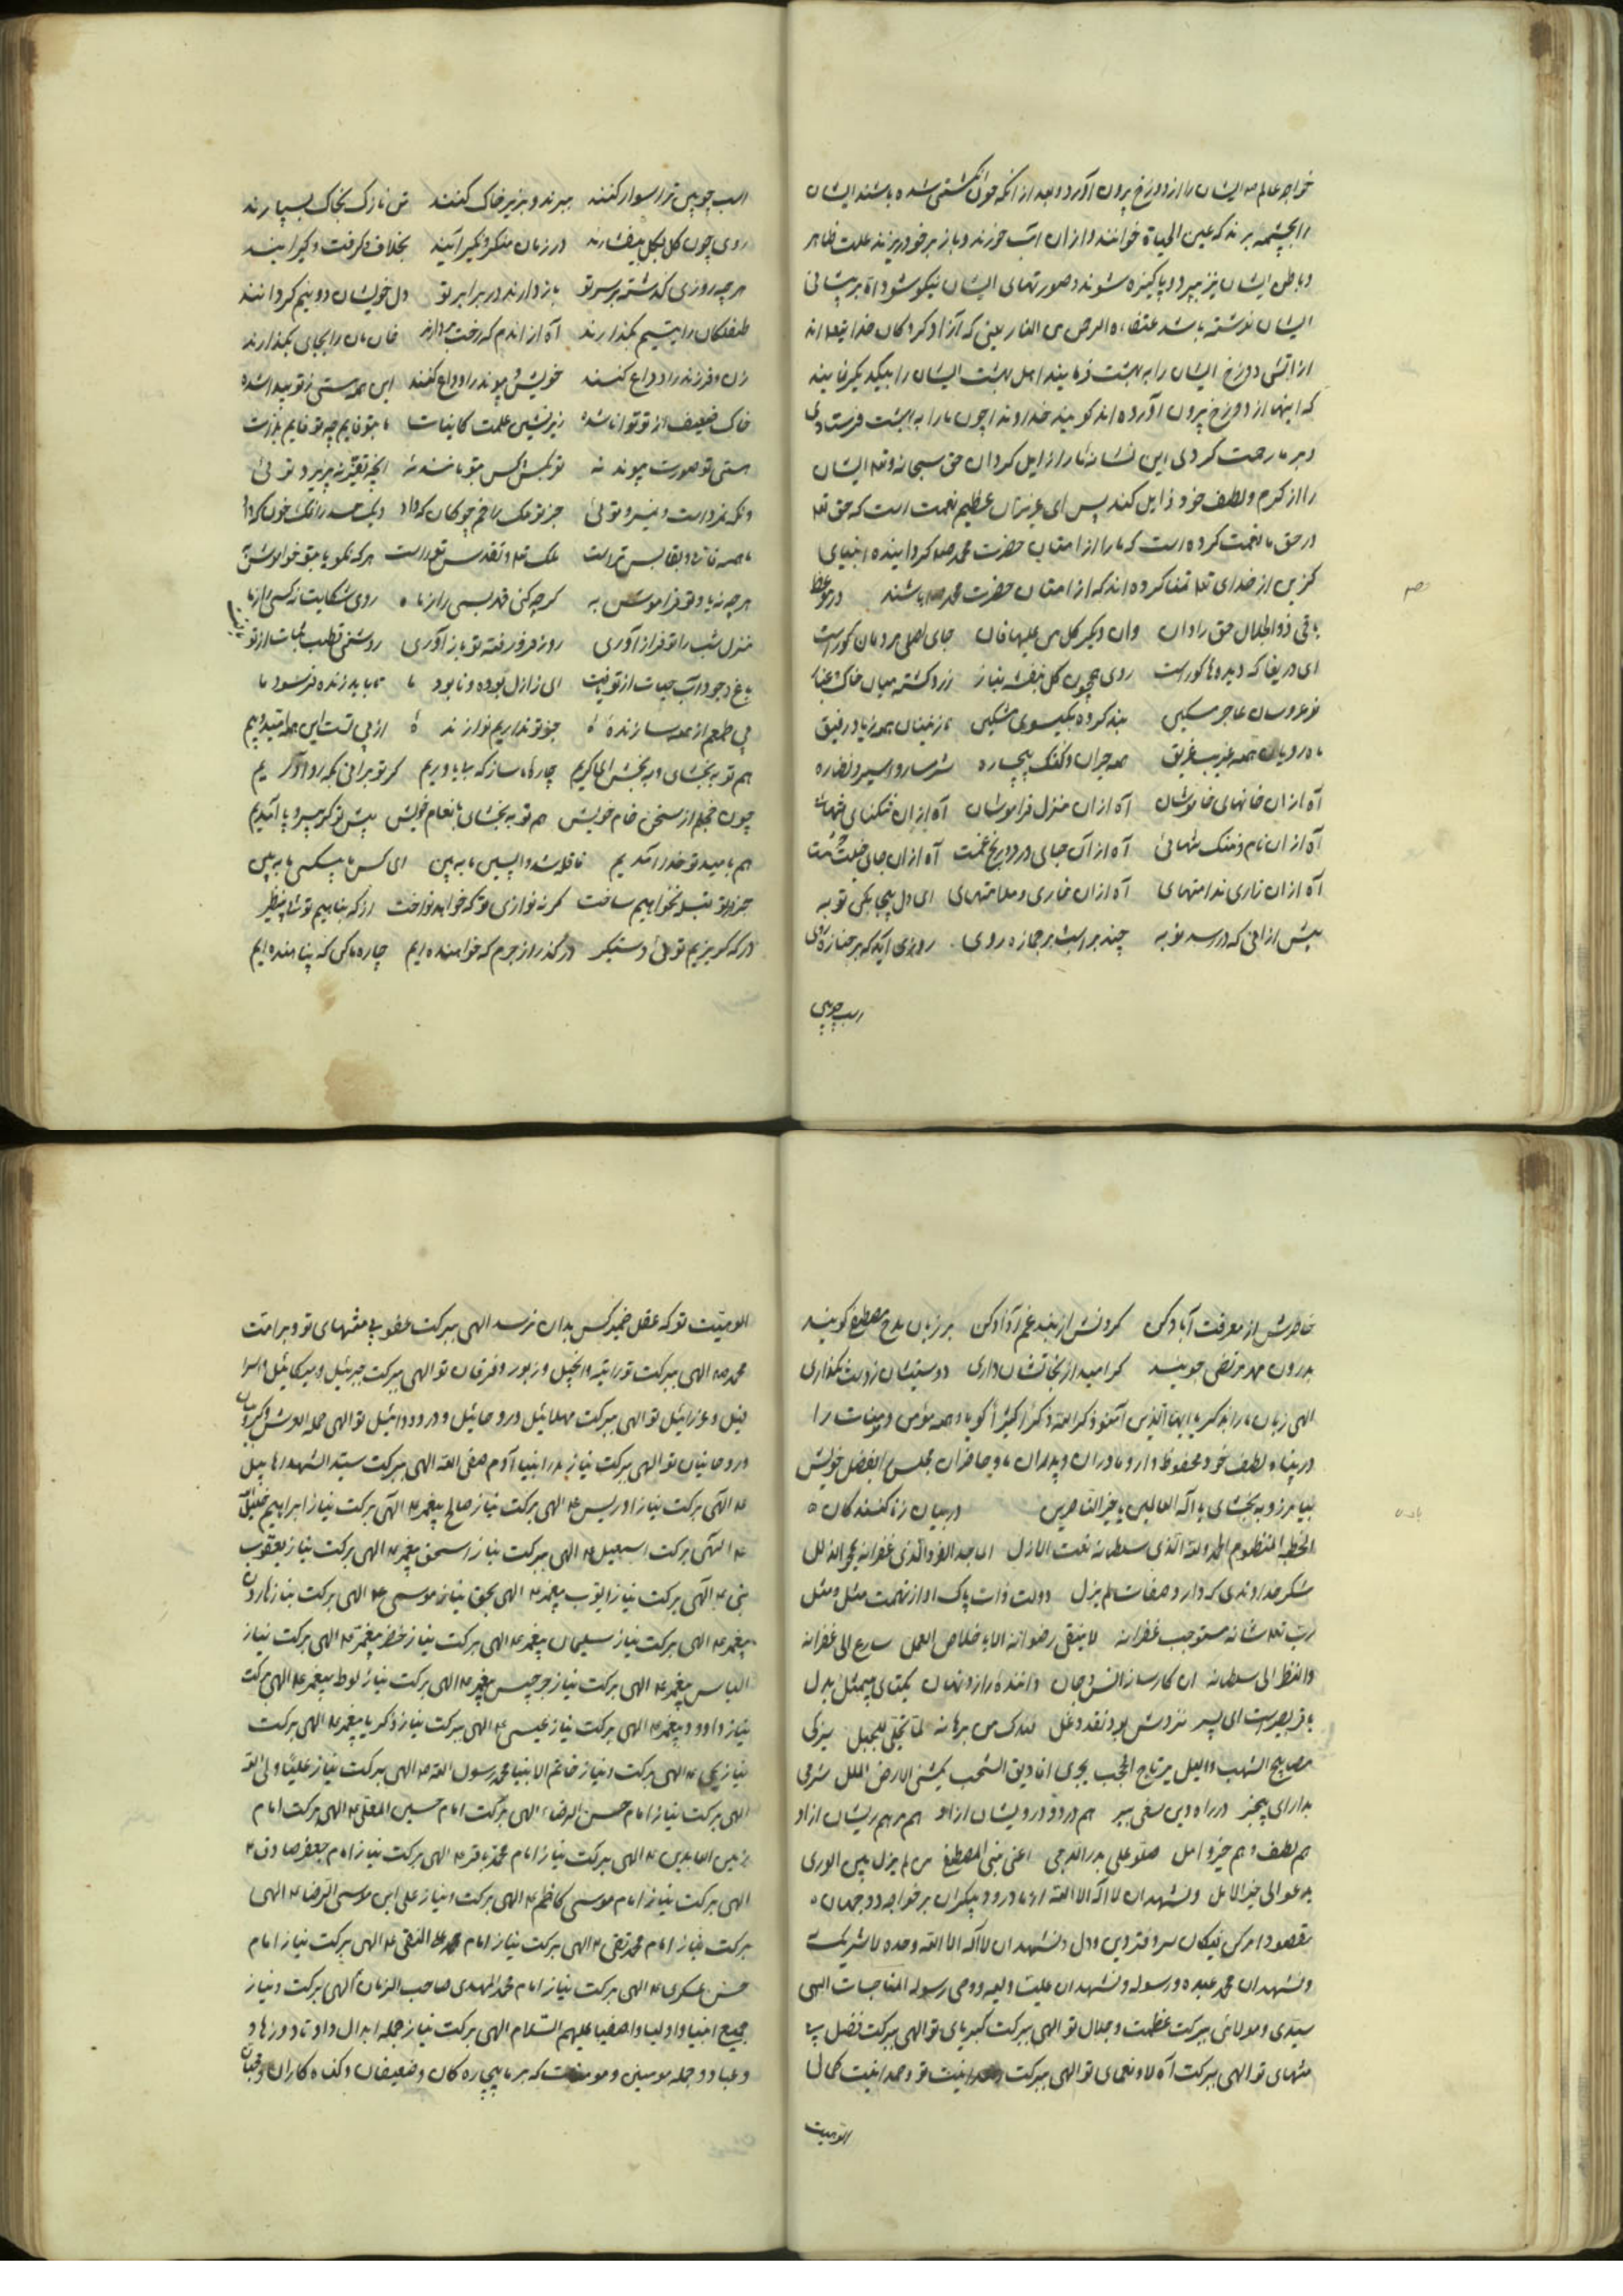 خواجه عالم صم ایشان را از دوزخ بیرون آورد و بعد از آنکه چون انگشتی شده باشند ایشان
را بچشمه برند که عین الحیاة خوانند و از ان آب خورند و باز بر خود ریزند علت ظاهر
و باطن ایشان نیز ببرد و پاکیزه شوند و صورتهای ایشان نیکو شود اما بر پیشانی
ایشان نوشته باشد عتقاء الرحمن من النار یعنی که آزاد کردگان خدا تعالی اند
از آتش دوزخ ایشان را به بهشت فرمایند اهل بهشت ایشان را بیکدیگر نمایند
که اینها از دوزخ بیرون آورده اند گویند خداوندا چون ما را به بهشت فرستادی
و بر ما رحمت کردی این نشانه ما را زایل گردان حق سبحانه و تعالی ایشان
را از کرم و لطف خود زایل کند پس ای عزیزان عظیم نعمت است که حق تعالی
در حق ما نعمت کرده است که ما را از امتان حضرت محمد صلعم گردانیده انبیای
گزین از خدای تعالی تمنا کرده اند که از امتان حضرت محمد صم باشند در موعظه
باقی ذوالجلال حق را دان وان دیگر کل من علیها فان جای اصلی مردمان گور است
ای دریغا که دیده ها کور است روی همچون گل بنفشه نیاز زرد گشته میان خاک
نو عروسان عاجر مسکین بند کرده بگیسوی مشکین نازنینان همه زیاد رفیق
ماه رویان همه غریب غریق همه حیران و گنگ بیچاره شرمسار و اسیر و نظاره
آه از ان خانهای خاموشان آه از ان منزل فراموشان آه از ان تنگنای
آه از ان نام و ننک تنهائی آه از آن جای درد و رنج و غمت آه از ان جای
آه از ان زاری ندامتهای آه از ان خاری و ملامتهای ای دل بیچا بکن توبه
پیش از انی که در رسد نوبه چند بر اسب بر جمازه روی روزی آید که بر جنازه روی
اسب چوبین
اسب چوبین ترا سوار کنند ببرند و بزیر خاک کنند تن نازک بخاک بسپارند
روی چون گل بگل بیفشارند در زمان منکر و نکیر آیند بخلاف و گرفت و گیر آیند
هر چه روزی گذشته بر سر تو باز دارند در برابر تو دل خویشان دو نیم گردانند
طفلکان را یتیم بگذارند آه از اندم که رخت بردارند خان مان را بجای بگذارند
زن و فرزند را وداع کنند خویش و پیوند را وداع کنند ای همه هستی ز تو پیدا شده
خاک ضعیف از تو توانا شده زیر نشین علمت کاینات ما بتو قایم چو تو قایم بذات
هستی تو صورت پیوند نه تو بکس و کس بتو مانند نه انچه تغیر نپذیرد توئی
وانکه نمردست و نمیرد توئی جز تو فلک را خم چوگان که داد دیک جسد را نمک خون که داد
ما همه فانی و بقا بس تراست ملک تعالی و تقدس تراست هر که نه گویا بتو خاموش به
هر چه نه یاد تو فراموش به گر چه کنی قهر بسی را ز ما روی شکایت نه کسی را ز ما
منزل شب را تو فراز آوری روز فرو رفته تو باز آوری روشنی
باغ وجود آب حیات از تو یافت ای ز ازل بوده و نابود ما
پی طمع از همه سازنده جز تو نداریم نوازنده از پی تست این همه امید و بیم
هم تو به بخشای و ببخش ای کریم چاره ما ساز که بی یاوریم گر تو برانی بکه رو آوریم
چون خجلم از سخن خام خویش هم تو به بخشای بانعام خویش پیش تو گر بی سر و پا آمدیم
هم بامید تو خدا آمدیم قافله شد واپسین ما به بین ای کس ما بیکسی ما به بین
جز در تو قبله نخواهیم ساخت گر نه نوازی تو که خواهد نواخت از که پناهیم توئی بی نظیر
در که گریزیم توئی دستگیر در گذر از جرم که خواهنده ایم چاره ما کن که پناهنده ایم
خاطرش از معرفت آباد کن گردنش از بند غم آزاد کن بر زبان مدح مصطفی گویند
بدرون مهر مرتضی جویند گر امید از نجاتشان داری دوستیشان ز دست نگذاری
الهی زبان ما را بذکر یا ایها الذین آمنو ذکرالله ذکراً کثیراً گویا و همه مؤمن و مؤمنات را
در پناه لطف خود محفوظ دار و مادران و پدران ما و حاضران مجلس را بفضل خویش
بیامرز و به بخشای یا اله العالمین یا خیر الناصرین در بیان زنا کنندکان
الخطبه المنظوم الحمد لله الذی سلطانه نعت الازل الماجد الفرد الذی غفرانه محو الذلل
شکر خداوندی که دارد صفات لم یزل دولت ذات پاک او از تهمت مثل و مثل
رب تعالی شانه مستوجب غفرانه لا ینبقی رضوانه الا باخلاص العمل سارع الی غفرانه
وانظر الی سلطانه ان کارساز انس و جان داننده راز نهان یکتای بیمثل و بدل
با هر بصر است ای پسر نزدش بود نقد دغل لله من برهانه لما تجلی للجبل
مصابیح الشهب واللیل مرتاج الحجب یجری افادیق السحب
بدار ای بیخبر در راه دین سعی ببر هم درد و درویشان از او هم مرهم ریشان ازاو
هم لطف و هم خیر و امل صلو علی بدر الدجی اعنی نبی المصطفی من لم یزل بین الوری
یدعو الی خیر الامل و نشهد ان لا اله الا الله اما درود بیکران بر خواجه دو جهان
مقصود امر کن فیکان سر دفتر دین و دول و نشهد ان لا اله الا الله وحده لا شریک له
و نشهد ان محمد عبده و رسوله و نشهد ان علیاً ولیه و وصی رسوله المناجات الهی
سیدی و مولائی ببرکت عظمت و جلال تو الهی ببرکت کبریای تو الهی ببرکت فضل بی
منتهای تو الهی ببرکت آلاء و نعمای تو الهی ببرکت وحدانیت تو و صمدانیت
الوهیت
الوهیت تو که عقل هیچکس بدان نرسد الهی ببرکت عفو بی منتهای تو و بر امت
محمد صم الهی ببرکت توراتیه و انجیل و زبور و فرقان تو الهی ببرکت جبرئیل و میکائیل و اسرا
فیل و عزرائیل تو الهی ببرکت مهلائیل و روحائیل و دردائیل تو الهی حملة العرش و کروبیان
و روحانیان تو الهی ببرکت نیاز پدر انبیا آدم صفی الله الهی ببرکت سید الشهدا هابیل
عم الهی برکت نیاز ادریس عم الهی برکت نیاز صالح پیغمبر عم الهی برکت نیاز ابراهیم خلیل
عم الهی برکت اسمعیل عم الهی ببرکت نیاز اسحق پیغمبر عم الهی برکت نیاز یعقوب
نبی عم الهی برکت نیاز ایوب پیغمبر عم الهی بحق نیاز موسی عم الهی برکت نیاز هارون
پیغمبر عم الهی برکت نیاز سلیمان پیغمبر عم الهی برکت نیاز خضر پیغمبر عم الهی برکت نیاز
الیاس پیغمبر عم الهی برکت نیاز جرجیس پیغمبر عم الهی برکت نیاز لوط پیغمبر عم الهی برکت
نیاز داوود پیغمبر عم الهی برکت نیاز عیسی عم الهی ببرکت نیاز ذکریا پیغمبر عم الهی برکت
نیاز یحیی عم الهی برکت و نیاز خاتم الانبیا محمد رسول الله صم الهی ببرکت نیاز علیاً ولی الله
الهی برکت نیاز امام حسن الرضا الهی برکت امام حسین عم الهی برکت امام
زین العابدین عم الهی ببرکت نیاز امام محمد باقر عم الهی برکت نیاز امام جعفر صادق عم
الهی برکت نیاز امام موسی کاظم عم الهی برکت و نیاز علی ابن موسی الرضا عم الهی
برکت نیاز امام محمد تقی عم الهی برکت نیاز امام علی النقی عم الهی برکت نیاز امام
حسن عسکری عم الهی برکت نیاز امام محمد المهدی صاحب الزمان الهی برکت و نیاز
جمیع انبیا و اولیا و اصفیا علیهم السلام الهی برکت نیاز جمله ابدال و اوتاد و زهاد
و عباد و جمله مومنین و مومنات که بر ما بیچاره کان و ضعیفان و گنه کاران